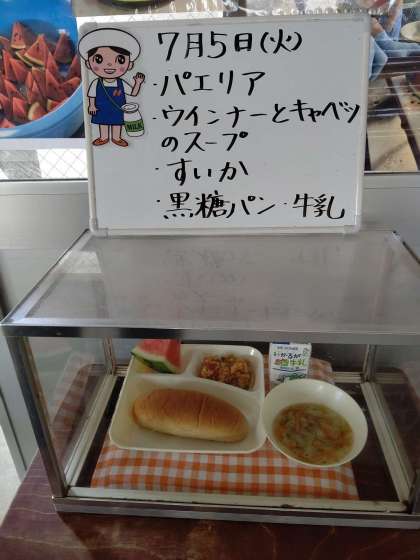 7月5日(火)
・パエリア
・ウインナーとキャベツ
のスープ
・すいか
・黒糖パン・牛乳
MILK
牛乳